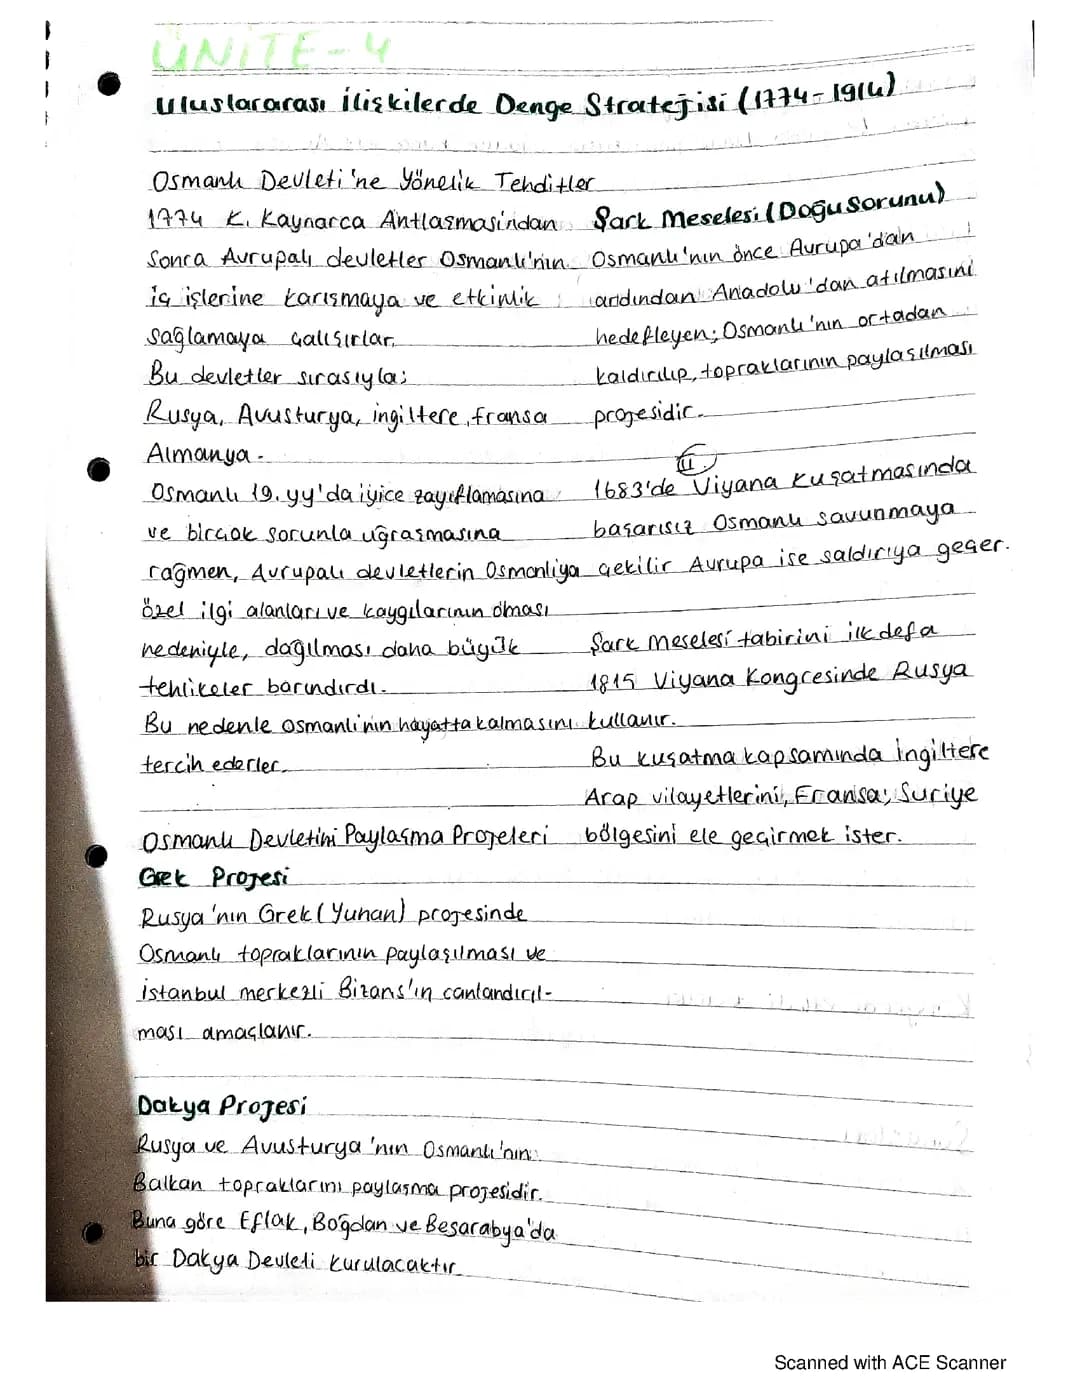 ÜNİTE-4
Uluslararası İlişkilerde Denge Stratejisi (1774-1914)
Osmanlı Devleti'ne Yönelik Tehditler
1774 K. Kaynarca Antlaşması'ndan
Sonra Avrupalı devletler Osmanlı'nın
iç işlerine karışmaya ve etkinlik
sağlamaya çalışırlar.
Bu devletler sırasıyla;
Rusya, Avusturya, ingiltere, fransa
Almanya.
Osmanlı 19.yy'da iyice zayıflamasına
ve birçok sorunla uğraşmasına
rağmen, Avrupalı devletlerin Osmanlıya
özel ilgi alanları ve kaygılarının olması
nedeniyle, dağılması daha büyük
tehlikeler barındırdı.
Bu nedenle osmanlı'nın hayatta kalmasını
tercih ederler.
Osmanlı Devletini Paylaşma Projeleri
Grek Projesi
Rusya'nın Grek (Yunan) projesinde
Osmanlı topraklarının paylaşılması ve
istanbul merkezli Bizans'ın canlandırıl-
ması amaçlanır.
Dakya Projesi
Rusya ve Avusturya'nın Osmanlı'nın
Balkan topraklarını paylaşma projesidir.
Buna göre Eflak, Boğdan ve Besarabya'da
bir Dakya Devleti kurulacaktır
Şark Meselesi (Doğu Sorunu)
Osmanlı'nın önce Avrupa'dan
ardından Anadolu'dan atılmasını
hedefleyen; Osmanlı'nın ortadan
kaldırılıp, topraklarının paylaşılması
projesidir.
II
1683'de Viyana kuşatmasında
başarısız Osmanlı savunmaya
çekilir Avrupa ise saldırıya geçer.
Şark Meselesi tabirini ilk defa
1815 Viyana Kongresinde Rusya
kullanır.
Bu kuşatma kapsamında İngiltere
Arap vilayetlerini, Fransa; Suriye
bölgesini ele geçirmek ister.
Scanned with ACE Scanner